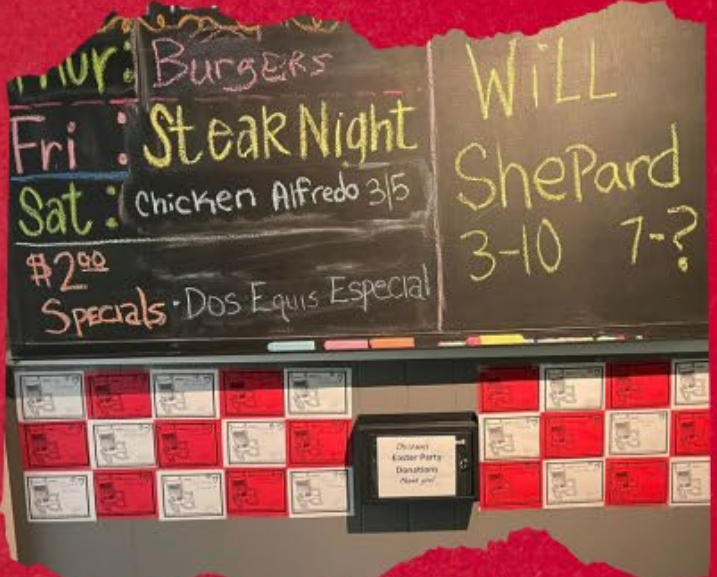 Thur: Burgers
Fri : Steak Night
Sat : Chicken Alfredo 3/5
$2.00
Specials · Dos Equis Especial
WiLL
ShePard
3-10 7-?
Easter Party
Donations
Thank you!